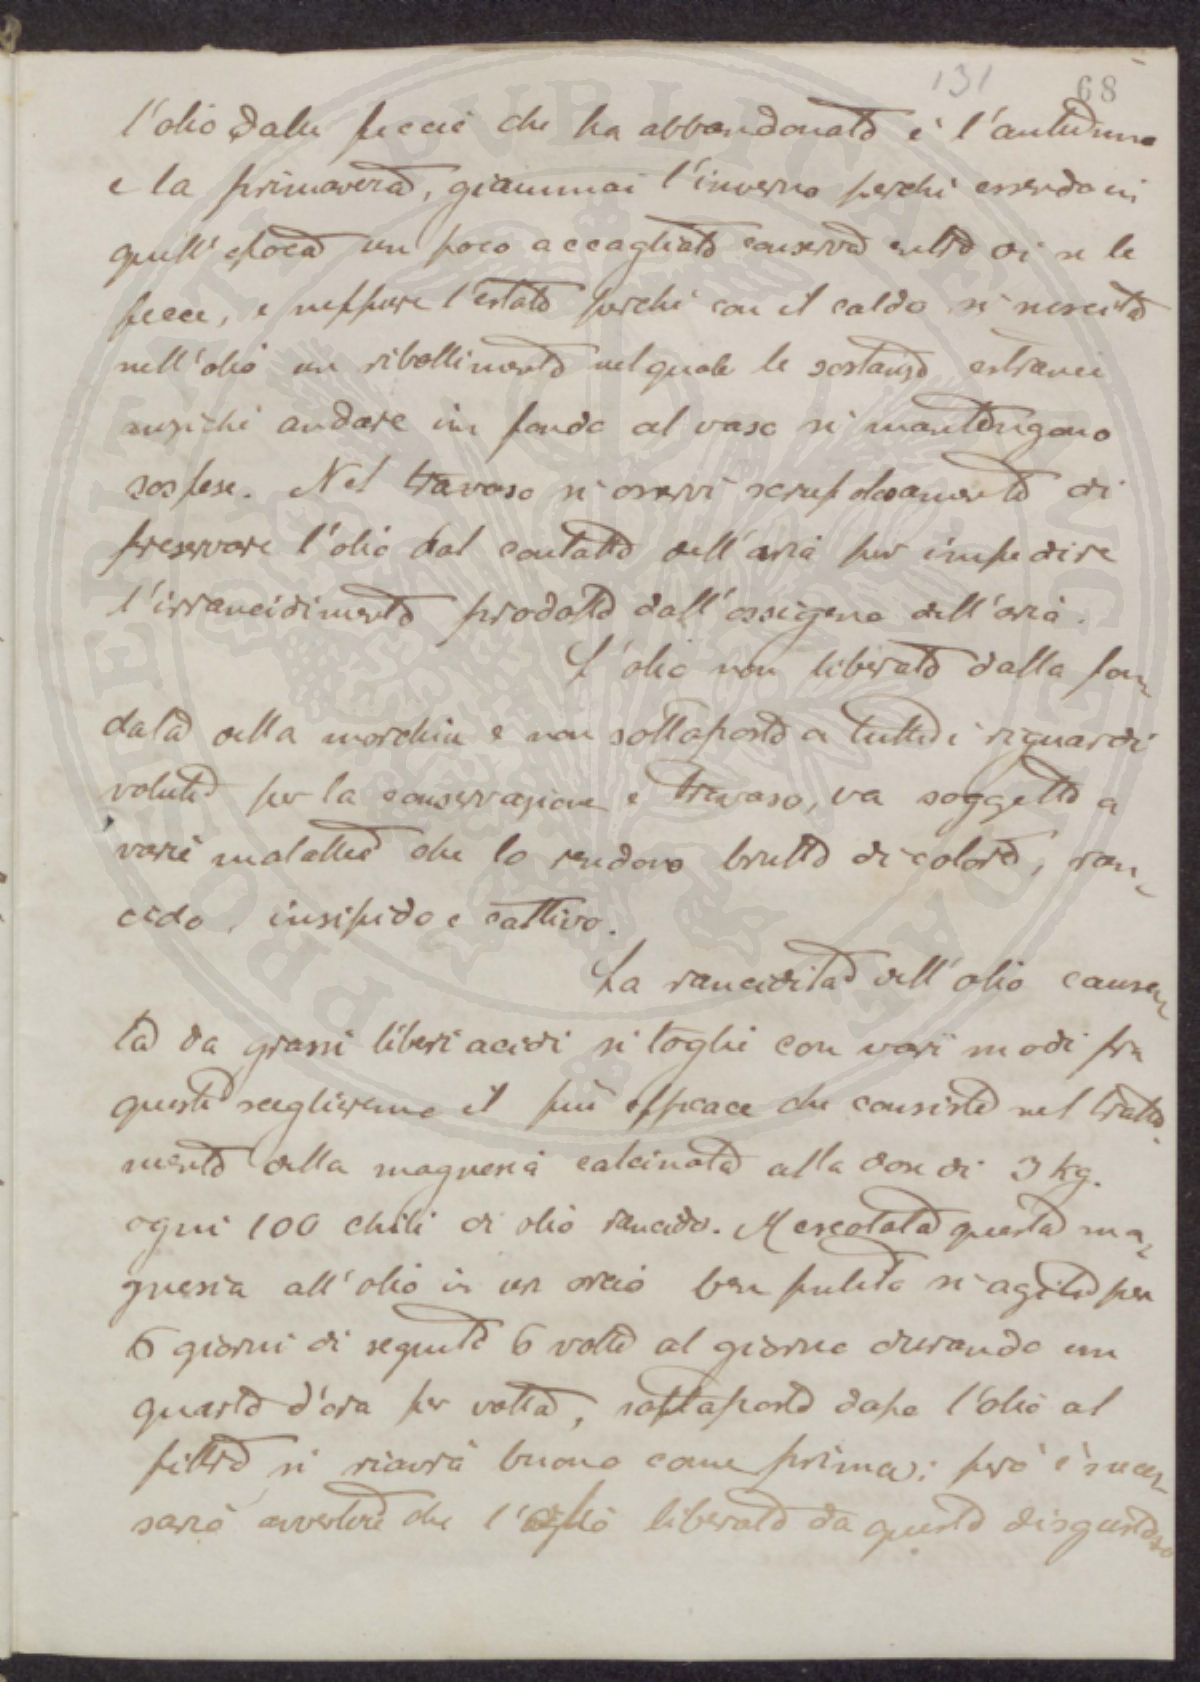 131 68
l'olio dalle feccie che ha abbandonato è l'autunno
e la primavera, giammai l'inverno perchè essendo in
quell'epoca un poco accagliato conserva entro di se le
fecce, e neppure l'estate perchè con il caldo si suscita
nell'olio un ribollimento nel quale le sostanze estranee
anzichè andare in fondo al vaso si mantengono
sospese. Nel travaso si osservi scrupolosamente di
preservare l'olio dal contatto dell'aria per impedire
l'irrancidimento prodotto dall'ossigeno dell'aria.
L'olio non liberato dalla fon-
data della morchia e non sottoposto a tutti i riguardi
voluti per la conservazione e travaso, va soggetto a
varie malattie che lo rendono brutto di colore, ran-
cido, insipido e cattivo.
La rancidità dell'olio causa-
ta da grassi liberi acidi si toglie con varii modi fra
questi sceglieremo il più efficace che consiste nel tratta-
mento della magnesia calcinata alla dose di 3 kg.
ogni 100 chili di olio rancido. Mescolata questa ma-
gnesia all'olio in un orcio ben pulito si agita per
6 giorni di seguito 6 volte al giorno durando un
quarto d'ora per volta, sottoposto dopo l'olio al
filtro si riavrà buono come prima; però è neces-
sario avvertire che l'olio liberato da questo disgustoso